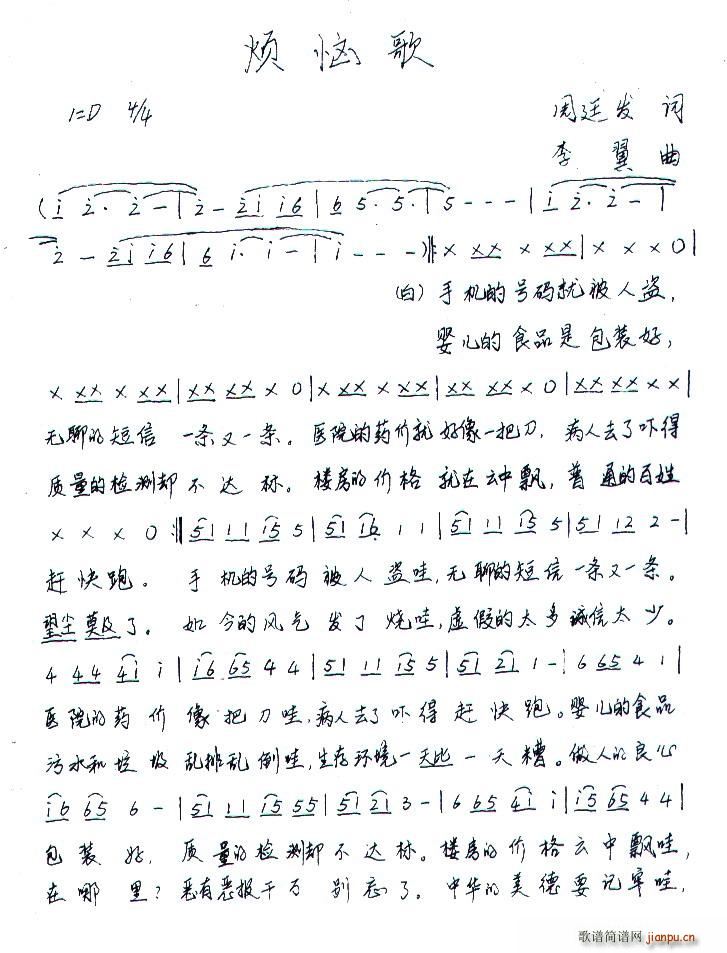 烦恼歌
1=D 4/4
周廷发 词
李翼 曲
(i 2· 2 — | 2 — 2i i6 | 6 5· 5· | 5 - - - | i 2· 2 — |
2 — 2i i6 | 6 i· i — | i - - -)‖: x xx x xx | x x x 0 |
(白) 手机的号码就被人盗，
婴儿的食品是包装好，
x xx x xx | xx xx x 0 | x xx x xx | xx xx x 0 | xx xx x x |
无聊的短信 一条又一条。医院的药价就好像一把刀，病人去了吓得
质量的检测却不达标。楼房的价格就在云中飘，普通的百姓
x x x 0 :‖ 51 11 i5 5 | 51 i6 1 1 | 51 11 i5 5 | 51 12 2 - |
赶快跑。手机的号码被人盗哇，无聊的短信一条又一条。
望尘莫及了。如今的风气发了烧哇，虚假的太多诚信太少。
4 44 4i i | i6 65 4 4 | 51 11 i5 5 | 51 21 1 - | 6 65 4 1 |
医院的药价像把刀哇，病人去了吓得赶快跑。婴儿的食品
污水和垃圾乱排乱倒哇，生存环境一天比一天糟。做人的良心
i6 65 6 - | 51 11 i5 55 | 51 21 3 - | 6 65 4i i | i5 65 4 4 |
包装好，质量的检测却不达标。楼房的价格云中飘哇，
在哪里？恶有恶报千万别忘了。中华的美德要记牢哇，
歌谱简谱网
jianpu.cn